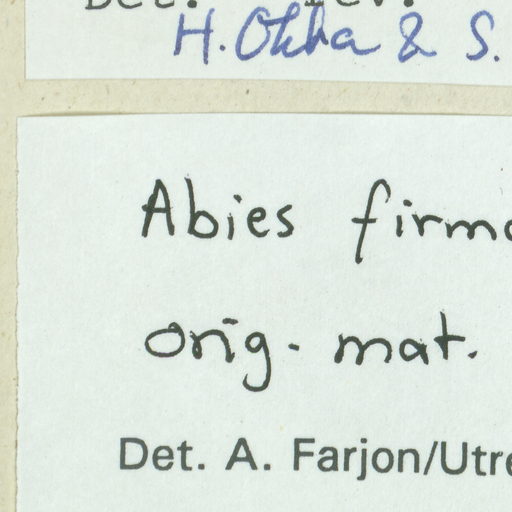 H. Ohba & S.
Abies firma
orig. mat.
Det. A. Farjon/Utre